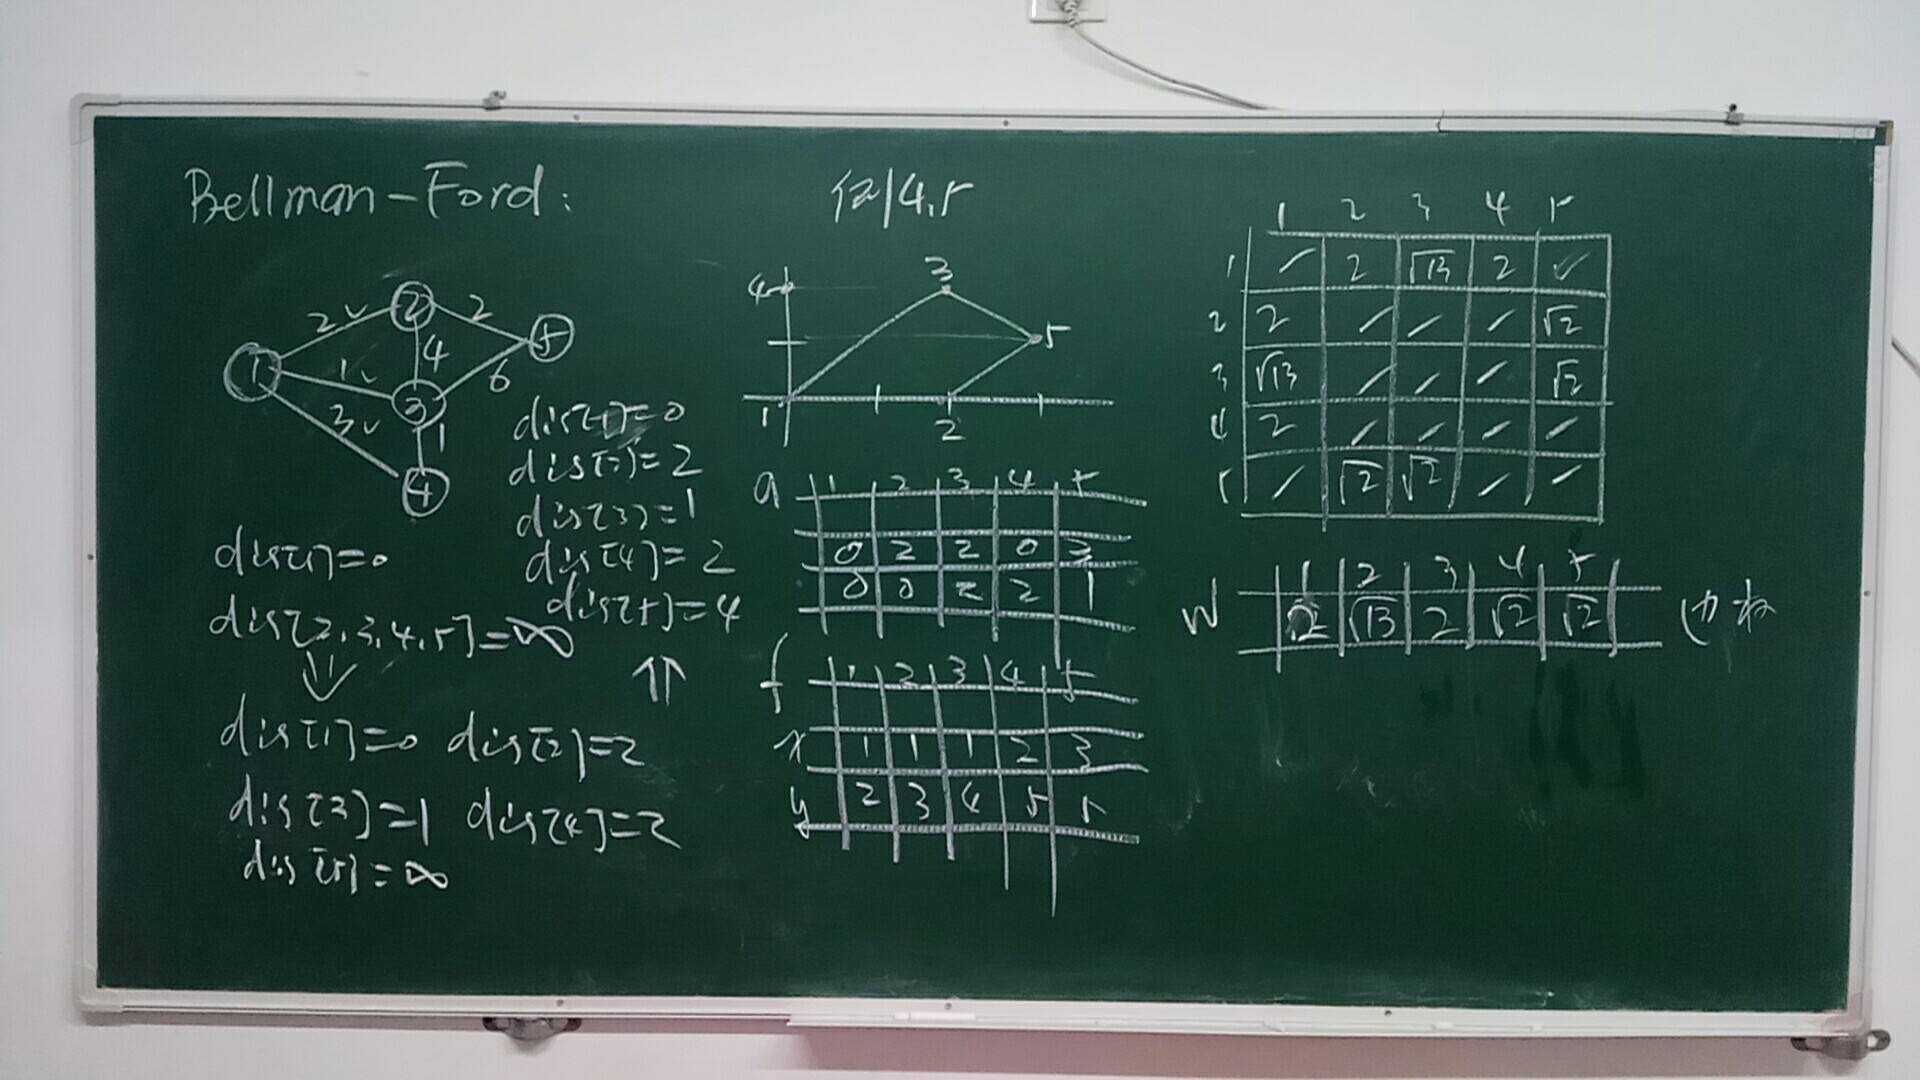 Bellman-Ford:
例4.5
2 2
1 4 5
1 6
3 3
1
4
dis[1]=0
dis[2]=2
dis[3]=1
dis[4]=2
dis[5]=4
dis[1]=0
dis[2,3,4,5]=∞
⇓
⇑
dis[1]=0 dis[2]=2
dis[3]=1 dis[4]=2
dis[5]=∞
4 3
5
1 2
a 1 2 3 4 5
0 2 2 0 3
0 0 2 2 1
f 1 2 3 4 5
x 1 1 1 2 3
y 2 3 4 5 5
1 2 3 4 5
1 / 2 √13 2 /
2 2 / / / √2
3 √13 / / / √2
4 2 / / / /
5 / √2 √2 / /
1 2 3 4 5
W 2 √13 2 √2 √2 边权